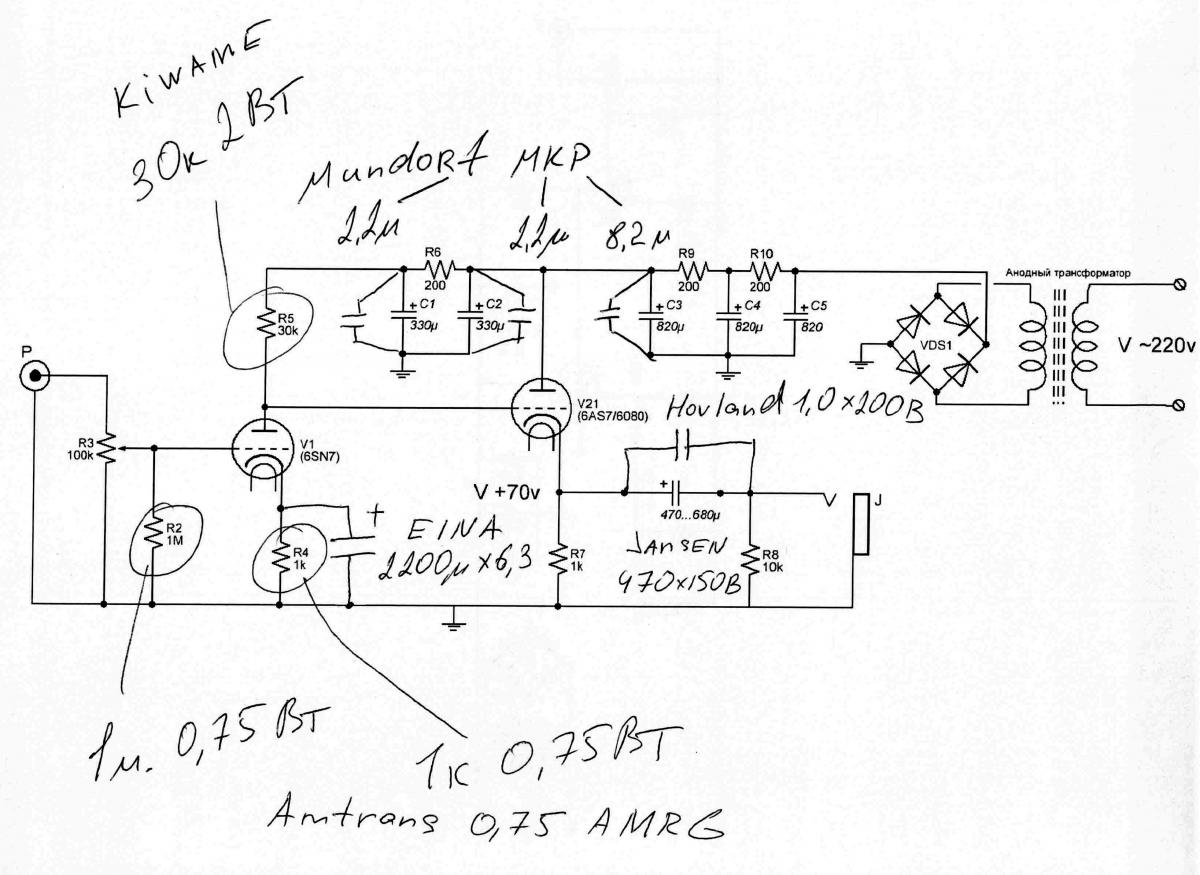 KiWAME
30к 2ВТ
MundoRf MKP
2,2μ
2,2μ
8,2м
R6
200
R9
200
R10
200
Анодный трансформатор
+ C1
330μ
+ C2
330μ
+ C3
820μ
+ C4
820μ
+ C5
820
R5
30k
VDS1
V ~220v
P
V21
(6AS7/6080)
Hovland 1,0×200В
R3
100k
V1
(6SN7)
V +70v
+
470...680μ
V
J
R2
1M
R4
1k
+
EINA
2200μ×6,3
R7
1k
JANSEN
470×150В
R8
10k
1м. 0,75 ВТ
1к 0,75 ВТ
Amtrans 0,75 AMRG